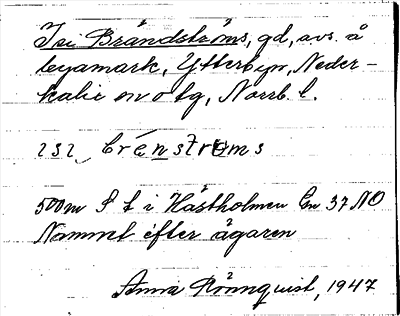 Isi Brändströms, gd, avs. å
legamark, Ytterbyn, Neder-
kalix sn o tg, Norrb. l.
ısı brénstroms
500m S t i Hästholmen En 37 NO
Namnet efter ägaren
Anna Rönnquist, 1947